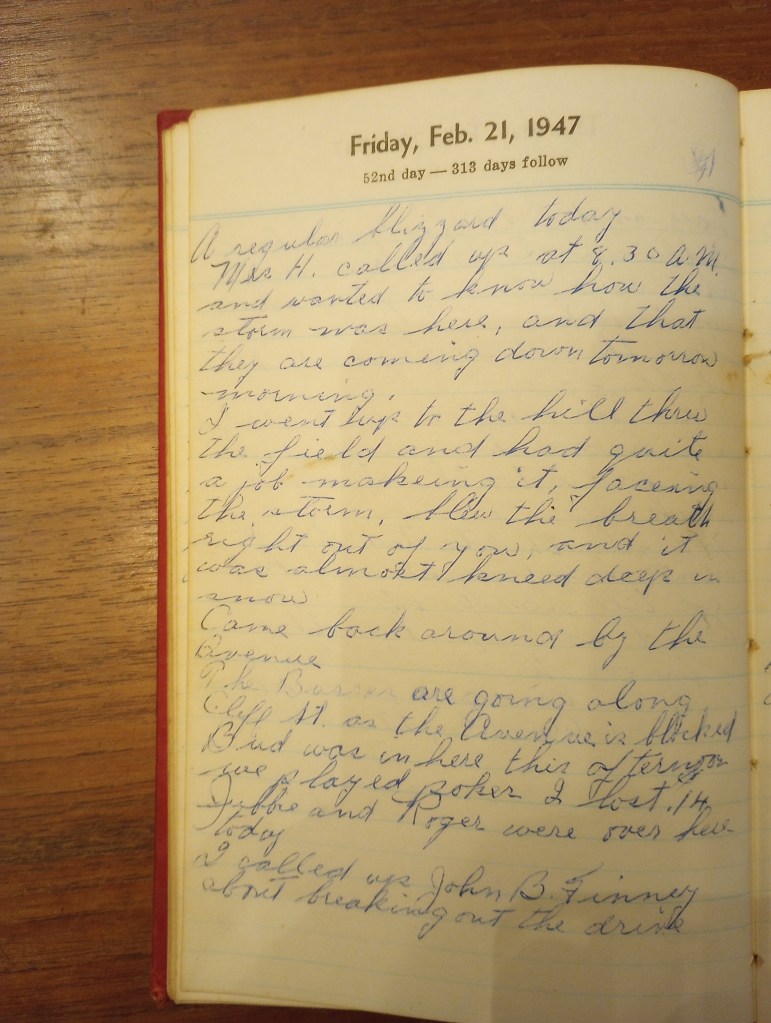 Friday, Feb. 21, 1947
52nd day — 313 days follow
A regular blizzard today
Mrs H. called up at 8.30 A.M.
and wanted to know how the
storm was here, and that
they are coming down tomorrow
morning.
I went up to the hill thru
the field and had quite
a job makeing it, faceing
the storm, blew the breath
right out of you, and it
was almost kneed deep in
snow
Came back around by the
Avenue
The Busses are going along
Cliff St. as the Avenue is blocked
Bud was in here this afternoon
we played poker I lost .14
and Roger were over here
today
I called up John B. Finney
about breaking out the drive